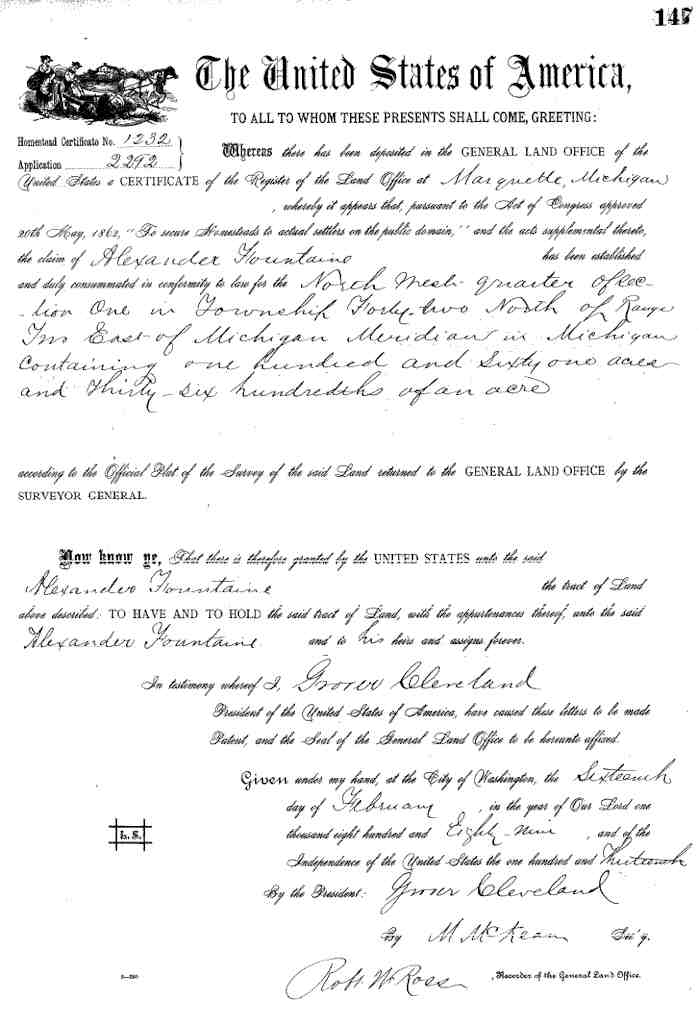 147
The United States of America,
TO ALL TO WHOM THESE PRESENTS SHALL COME, GREETING:
Homestead Certificate No. 1232
Application 2292
Whereas there has been deposited in the GENERAL LAND OFFICE of the
United States a CERTIFICATE of the Register of the Land Office at Marquette, Michigan
, whereby it appears that, pursuant to the Act of Congress approved
20th May, 1862, "To secure Homesteads to actual settlers on the public domain," and the acts supplemental thereto,
the claim of Alexander Fountaine has been established
and duly consummated in conformity to law for the North West quarter of Sec-
-tion One in Township Forty-two North of Range
Two East of Michigan Meridian in Michigan
Containing one hundred and Sixty one acres
and Thirty-six hundredths of an acre
according to the Official Plat of the Survey of the said Land returned to the GENERAL LAND OFFICE by the
SURVEYOR GENERAL.
Now know ye, That there is therefore granted by the UNITED STATES unto the said
Alexander Fountaine the tract of Land
above described: TO HAVE AND TO HOLD the said tract of Land, with the appurtenances thereof, unto the said
Alexander Fountaine and to his heirs and assigns forever.
In testimony whereof I, Grover Cleveland
President of the United States of America, have caused these letters to be made
Patent, and the Seal of the General Land Office to be hereunto affixed.
Given under my hand, at the City of Washington, the Sixteenth
day of February, in the year of Our Lord one
thousand eight hundred and Eighty-nine, and of the
Independence of the United States the one hundred and Thirteenth
L. S.
By the President: Grover Cleveland
By M. McKean Sec'y.
Robt. W. Ross, Recorder of the General Land Office.